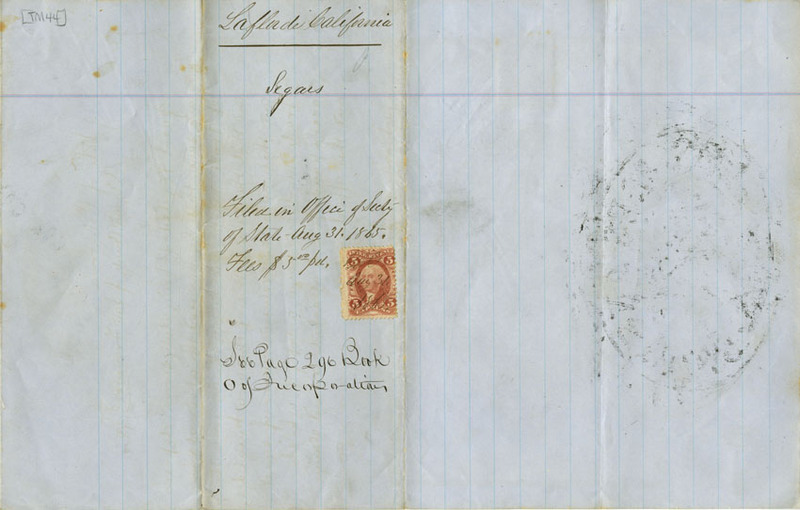 [TM44]
La flade California
Segars
Filed in Office of Secty
of State Aug 31. 1865.
Fees $5 00 pd.
5 5
5 5
See Page 296 Book
O of Incorporations